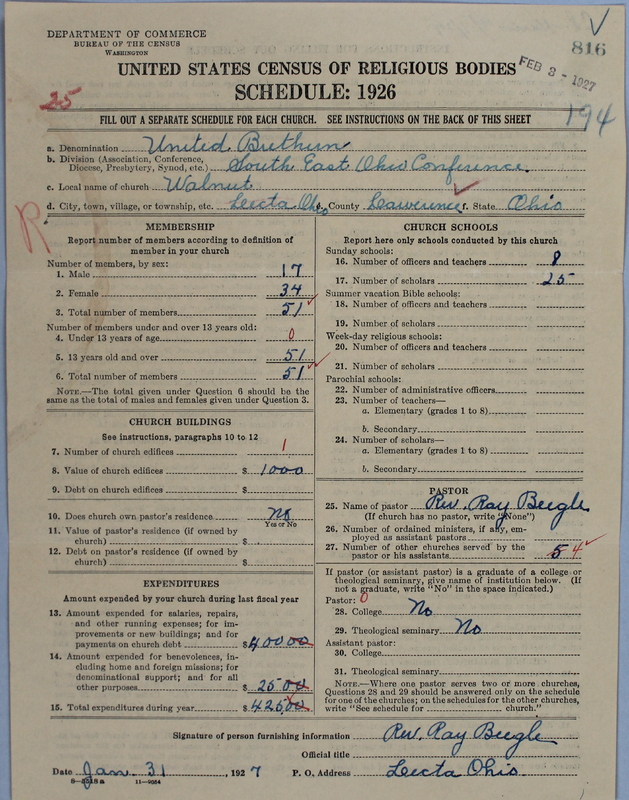 DEPARTMENT OF COMMERCE
BUREAU OF THE CENSUS
WASHINGTON
816
FEB 3 - 1927
UNITED STATES CENSUS OF RELIGIOUS BODIES
SCHEDULE: 1926
25
194
FILL OUT A SEPARATE SCHEDULE FOR EACH CHURCH. SEE INSTRUCTIONS ON THE BACK OF THIS SHEET
a. Denomination United Brethern
b. Division (Association, Conference, Diocese, Presbytery, Synod, etc.) South East Ohio Conference.
c. Local name of church Walnut
d. City, town, village, or township, etc. Leecta Ohio County Lawerence f. State Ohio
R
MEMBERSHIP
Report number of members according to definition of
member in your church
Number of members, by sex:
1. Male 17
2. Female 34
3. Total number of members 51
Number of members under and over 13 years old:
4. Under 13 years of age 0
5. 13 years old and over 51
6. Total number of members 51
NOTE.—The total given under Question 6 should be
same as the total of males and females given under Question 3.
CHURCH BUILDINGS
See instructions, paragraphs 10 to 12
7. Number of church edifices 1
8. Value of church edifices $ 1000
9. Debt on church edifices $
10. Does church own pastor's residence No
Yes or No
11. Value of pastor's residence (if owned by
church) $
12. Debt on pastor's residence (if owned by
church) $
EXPENDITURES
Amount expended by your church during last fiscal year
13. Amount expended for salaries, repairs,
and other running expenses; for im-
provements or new buildings; and for
payments on church debt $ 400 00
14. Amount expended for benevolences, in-
cluding home and foreign missions; for
denominational support; and for all
other purposes $ 25 00
15. Total expenditures during year $ 425 00
CHURCH SCHOOLS
Report here only schools conducted by this church
Sunday schools:
16. Number of officers and teachers 8
17. Number of scholars 25
Summer vacation Bible schools:
18. Number of officers and teachers
19. Number of scholars
Week-day religious schools:
20. Number of officers and teachers
21. Number of scholars
Parochial schools:
22. Number of administrative officers
23. Number of teachers—
a. Elementary (grades 1 to 8)
b. Secondary
24. Number of scholars—
a. Elementary (grades 1 to 8)
b. Secondary
PASTOR
25. Name of pastor Rev. Ray Beegle
(If church has no pastor, write "None")
26. Number of ordained ministers, if any, em-
ployed as assistant pastors
27. Number of other churches served by the
pastor or his assistants 5 4
If pastor (or assistant pastor) is a graduate of a college or
theological seminary, give name of institution below. (If
not a graduate, write "No" in the space indicated.)
Pastor: 0
28. College No
29. Theological seminary No
Assistant pastor:
30. College
31. Theological seminary
NOTE.—Where one pastor serves two or more churches,
Questions 28 and 29 should be answered only on the schedule
for one of the churches; on the schedules for the other churches,
write "See schedule for church."
Signature of person furnishing information Rev. Ray Beegle
Official title
Date Jan. 31, 1927 P. O. Address Leecta Ohio.
8-5518a 11-9054